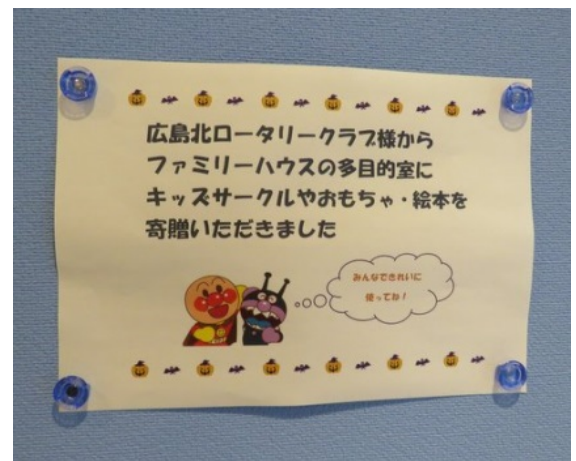 広島北ロータリークラブ様から
ファミリーハウスの多目的室に
キッズサークルやおもちゃ・絵本を
寄贈いただきました
みんなできれいに
使ってね！